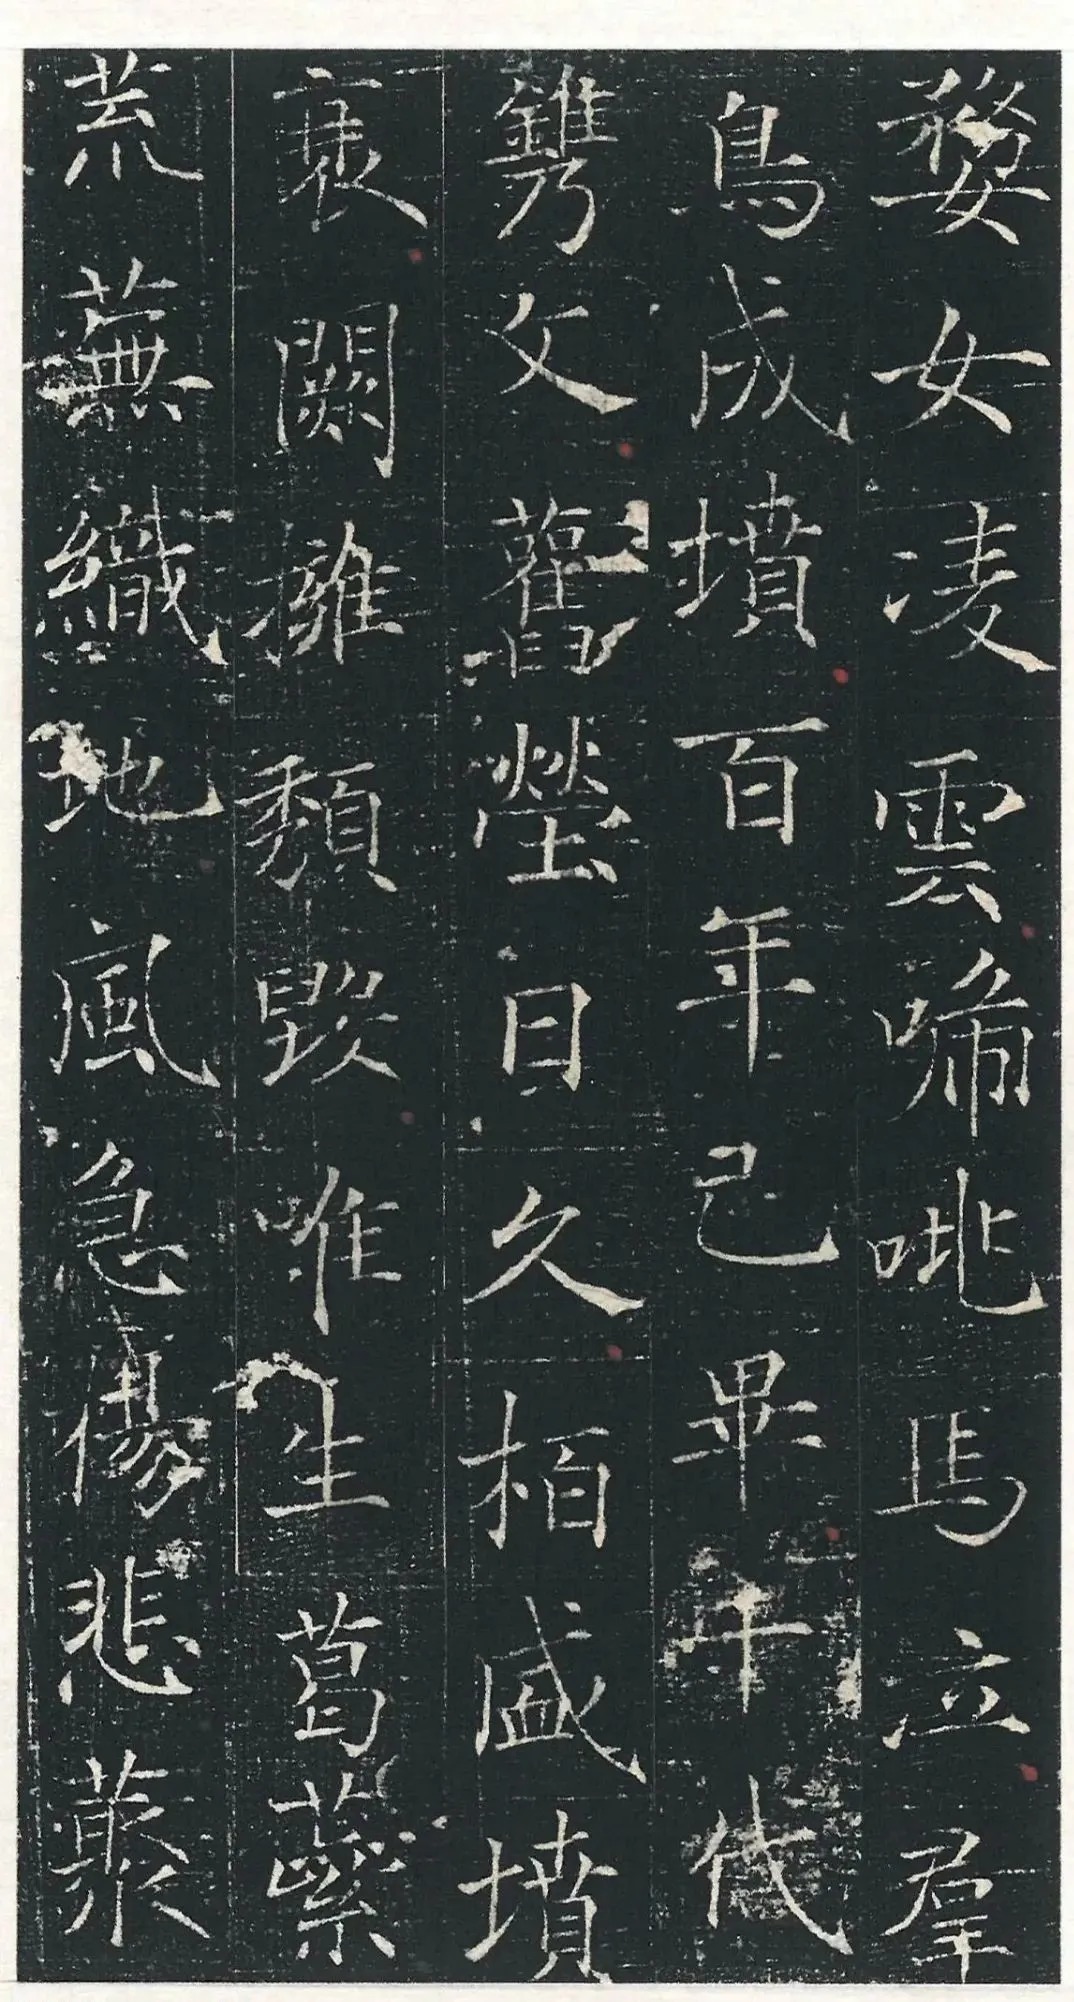 婺女凌雲啼咷馬立羣
鳥成墳百年已畢千代
鐫文舊塋日久柏盛墳
衰闕擁頹毀唯生葛
荒蕪織地風急傷悲藂